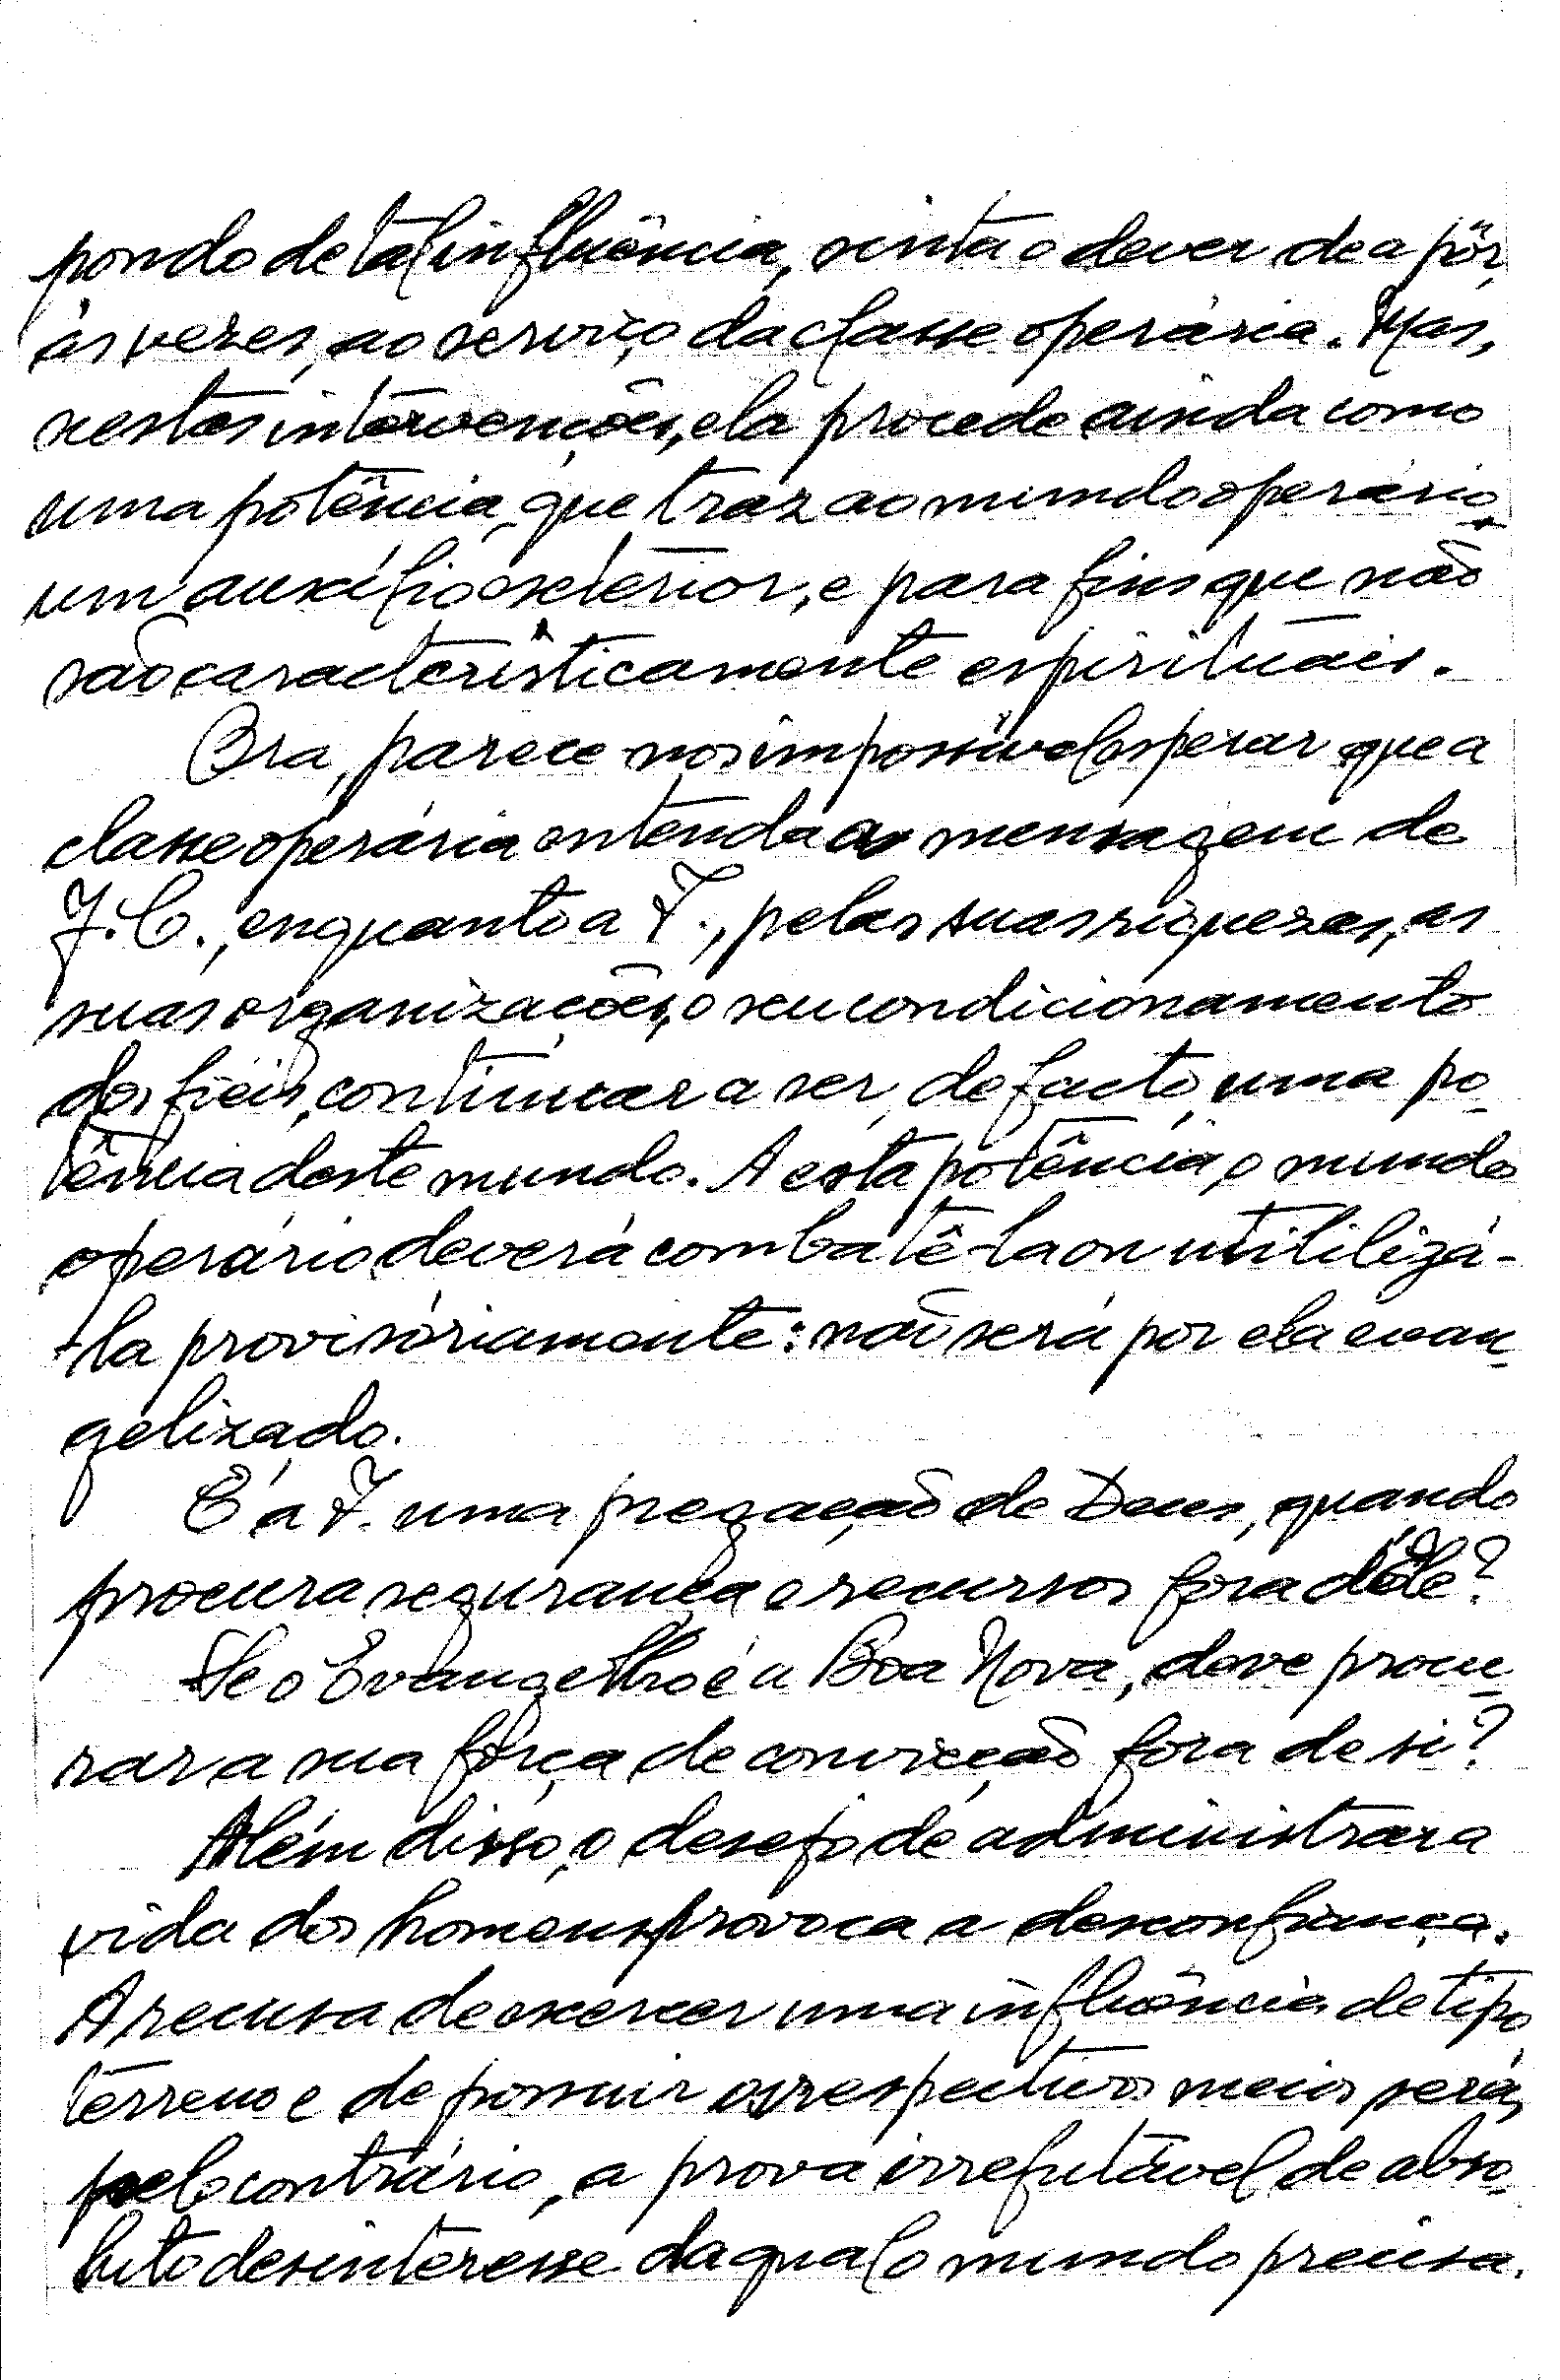 pondo de tal influência, sinta o dever de a pôr,
às vezes, ao serviço da classe operária. Mas,
nestas intervenções, ela procede ainda como
uma potência, que traz ao mundo operário
um auxílio exterior, e para fins que não
são caracterìsticamente espirituais.
Ora, parece-nos impossível esperar que a
classe operária entenda a mensagem de
J. C., enquanto a I., pelas suas riquezas, as
suas organizações, o seu condicionamento
dos fiéis, continuar a ser, de facto, uma po-
tência deste mundo. A esta potência, o mundo
operário deverá combatê-la ou utilizá-
-la provisòriamente: não será por ela evan-
gelizado.
É a I. uma pregação de Deus, quando
procura segurança e recursos fora dêle?
Se o Evangelho é a Boa Nova, deve procu-
rar a sua fôrça de convicção fora de si?
Além disso, o desejo de administrar a
vida dos homens provoca a desconfiança.
A recusa de exercer uma influência de tipo
terreno e de possuir os respectivos meios será,
pelo contrário, a prova irrefutável de abso-
luto desinterêsse da qual o mundo precisa.